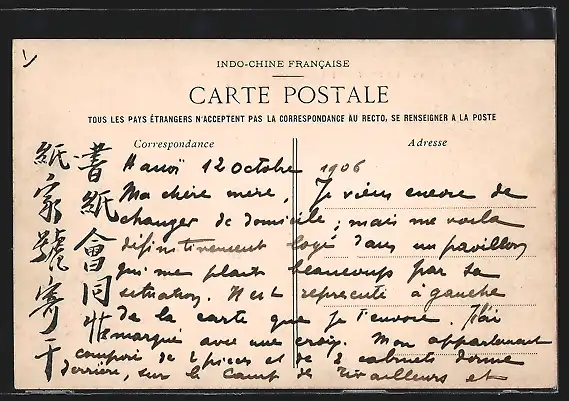 INDO-CHINE FRANÇAISE
CARTE POSTALE
TOUS LES PAYS ÉTRANGERS N'ACCEPTENT PAS LA CORRESPONDANCE AU RECTO, SE RENSEIGNER A LA POSTE
Correspondance
Adresse
Hanoï 12 Octobre 1906
Ma chère mère, Je viens encore de
changer de domicile ; mais me voila
définitivement logé dans un pavillon
qui me plait beaucoup par sa
situation. Il est représenté à gauche
de la carte que je t'envoie. J'ai
marqué avec une croix. Mon appartement
composé de 2 pièces et de 2 cabinets donne
derrière, sur le Camp des Tirailleurs et
書紙會同
紙家號寄于